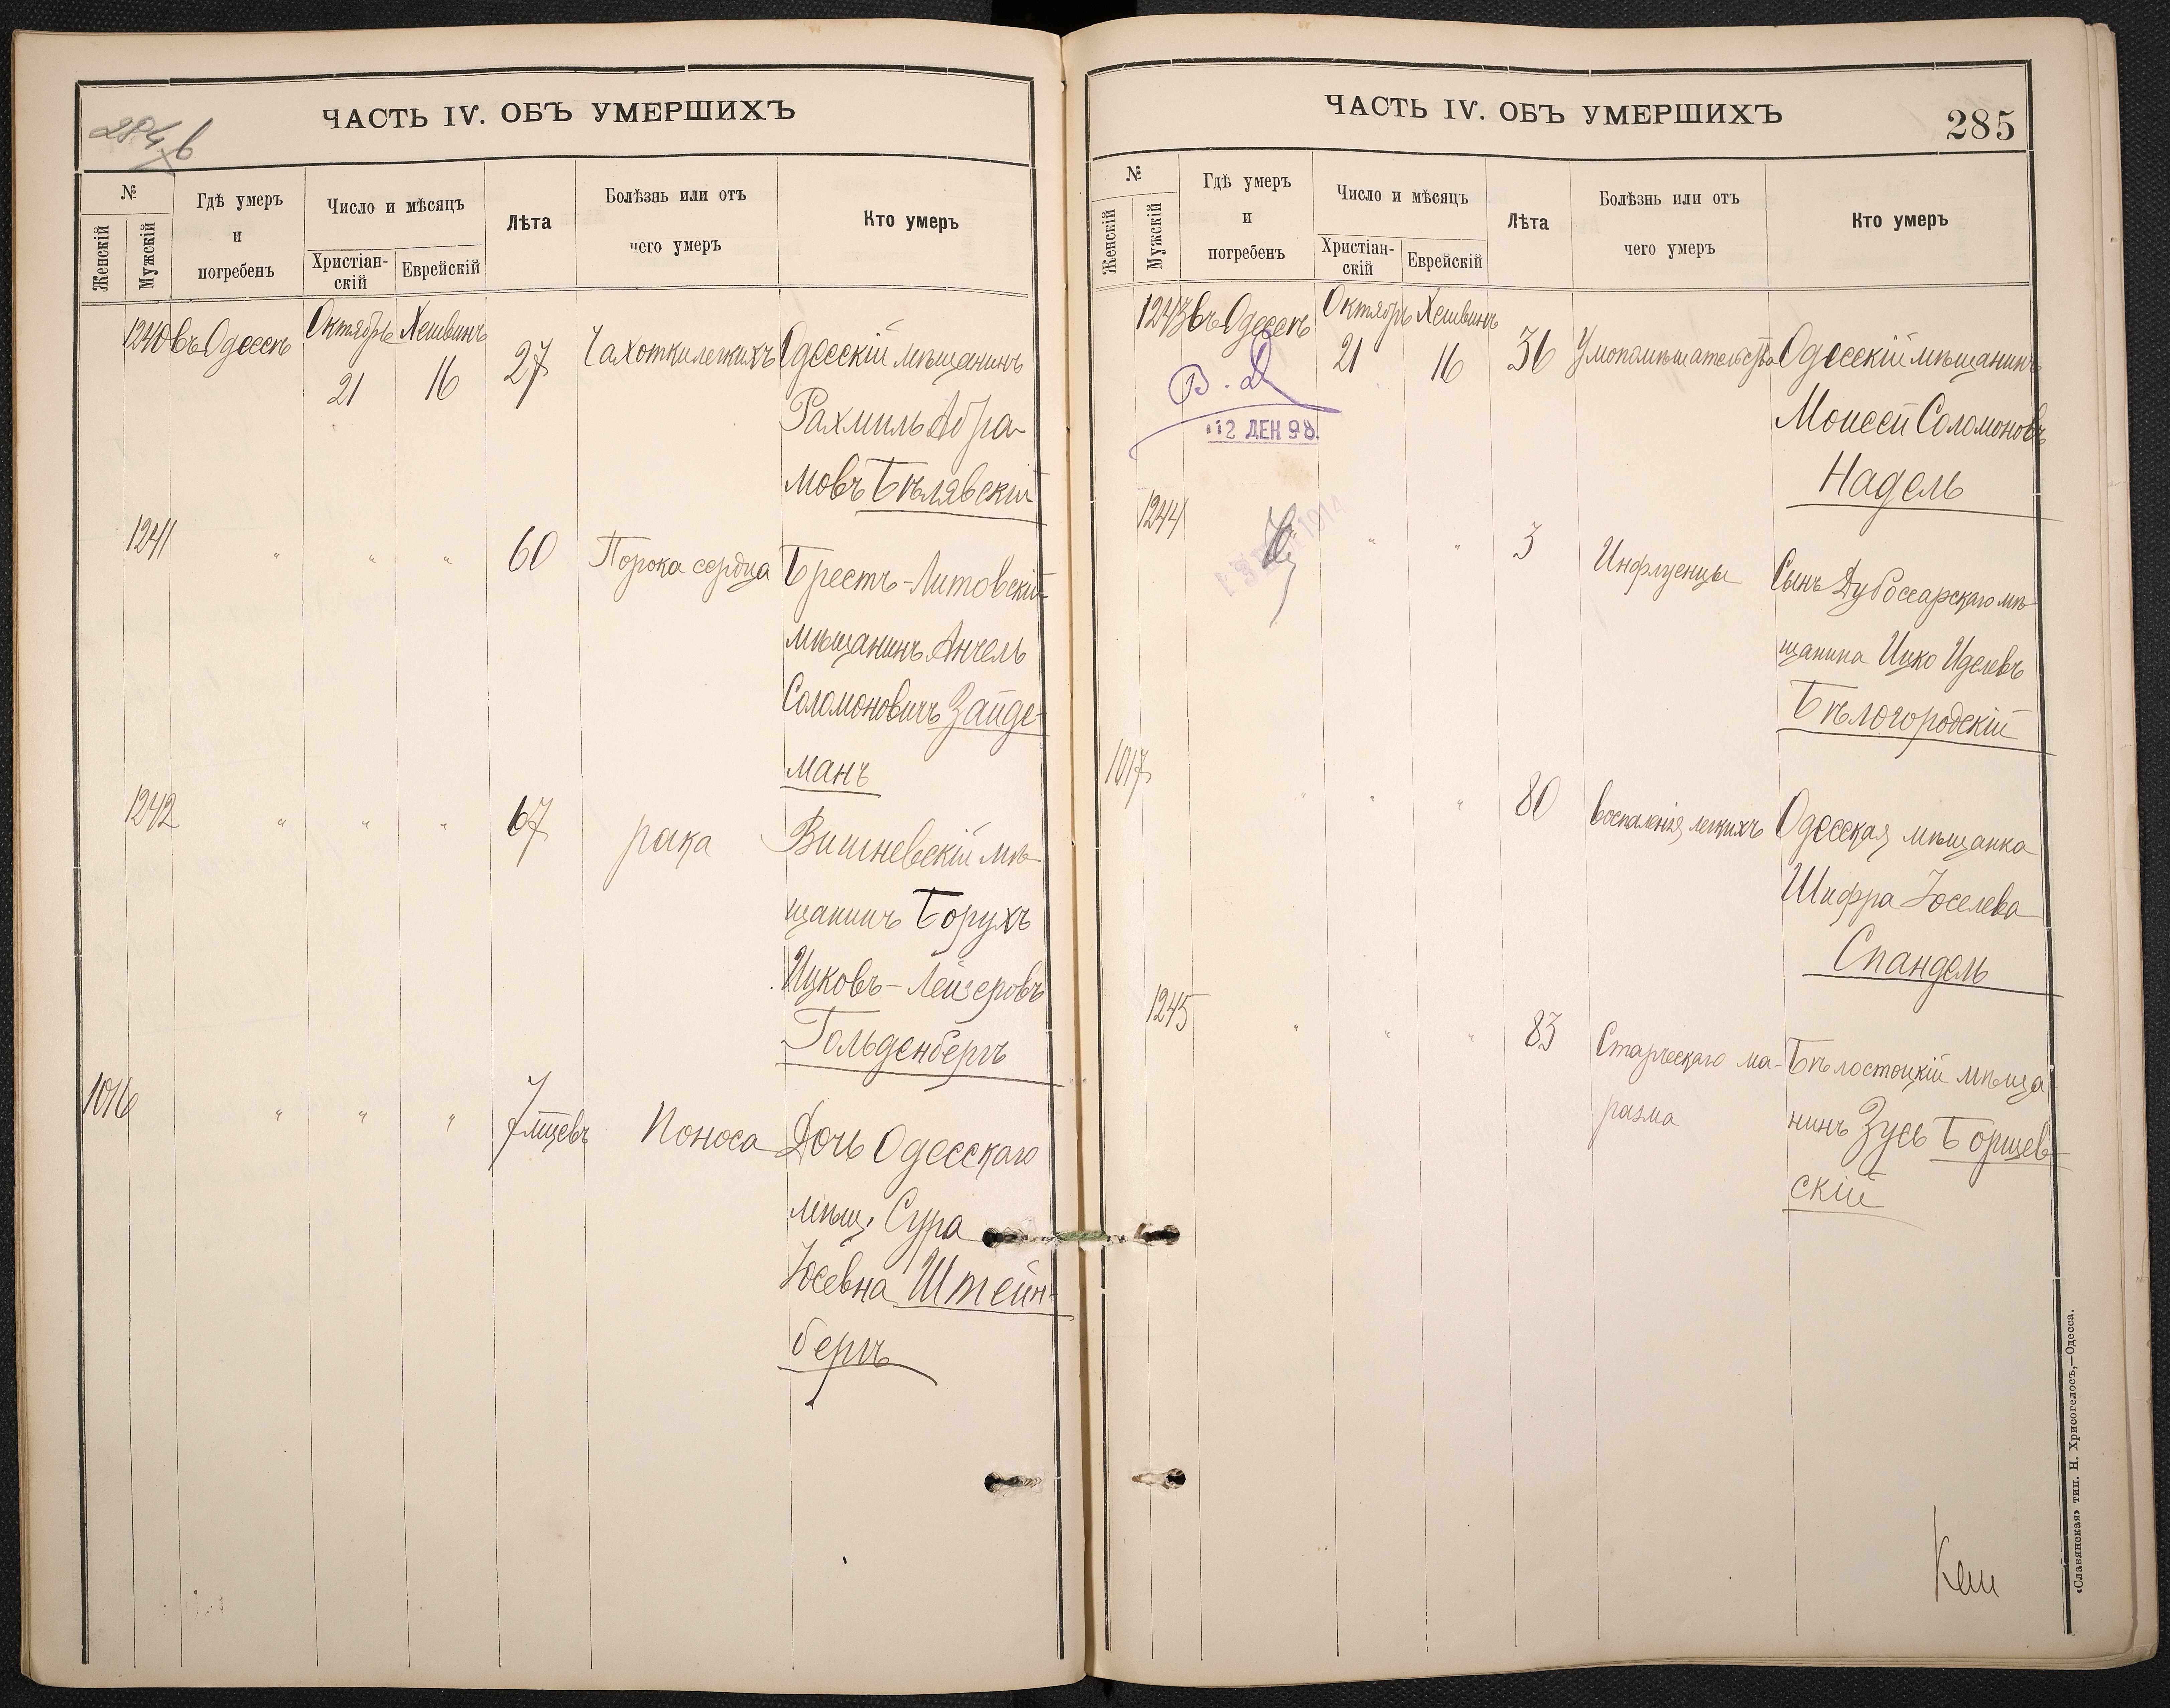 284 б
ЧАСТЬ IV. ОБЪ УМЕРШИХЪ
№
Женскій
Мужскій
Гдѣ умеръ
и
погребенъ
Число и мѣсяцъ
Христіан-
скій
Еврейскій
Лѣта
Болѣзнь или отъ
чего умеръ
Кто умеръ
1240 въ Одессѣ Октябрь Хешвинъ
21 16 27 Чахотки легкихъ Одесскій мѣщанинъ
Рахмиль Абра-
мовъ Бѣлявскій
1241 " " " 60 Порока сердца Брестъ-Литовскій
мѣщанинъ Анчель
Соломоновичъ Зайде-
манъ
1242 " " " 67 рака Вишневскій мѣ-
щанинъ Борухъ
Ицковъ-Лейзеровъ
Гольденбергъ
1016 " " " 7 мцевъ Поноса Дочь Одесскаго
мѣщ. Сура
Юсевна Штейн-
бергъ
ЧАСТЬ IV. ОБЪ УМЕРШИХЪ
285
№
Женскій
Мужскій
Гдѣ умеръ
и
погребенъ
Число и мѣсяцъ
Христіан-
скій
Еврейскій
Лѣта
Болѣзнь или отъ
чего умеръ
Кто умеръ
1243 въ Одессѣ Октябрь Хешвинъ
21 16 36 Умопомѣшательства Одесскій мѣщанинъ
В. Д.
12 ДЕК 98.
Моисей Соломоновъ
Надель
1244 " " 3 Инфлуенцы Сынъ Дубоссарскаго мѣ-
1914
щанина Ицко Иделевъ
Бѣлогородскій
1017 " " " 80 воспаленія легкихъ Одесская мѣщанка
Шифра Юселева
Спандель
1245 " " " 83 Старческаго ма- Бѣлостоцкій мѣща
разма нинъ Зусь Борщев-
скій
«Славянская» тип. Н. Хрисогелосъ,—Одесса.